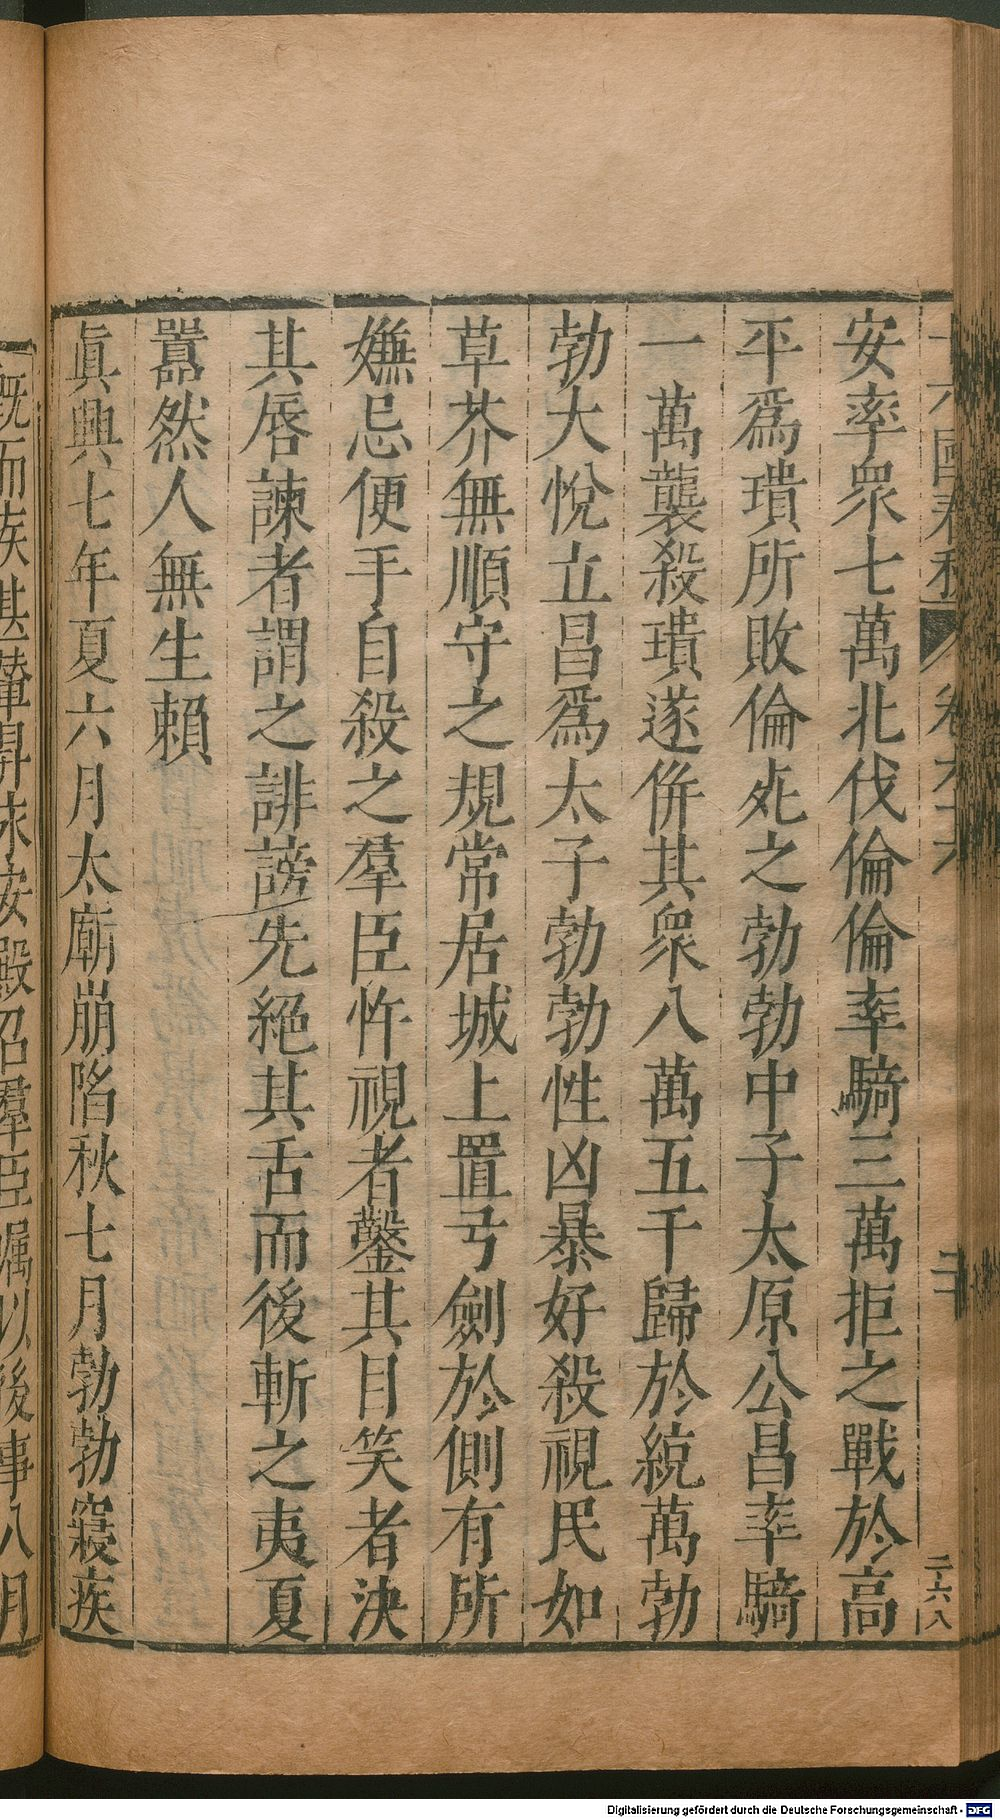 安率衆七萬北伐倫倫率騎三萬拒之戰於高
平爲璝所敗倫死之勃勃中子太原公昌率騎
一萬襲殺璝遂倂其衆八萬五千歸於統萬勃
勃大悅立昌爲太子勃勃性凶暴好殺視民如
草芥無順守之規常居城上置弓劍於側有所
嫌忌便手自殺之羣臣忤視者鑿其目笑者決
其唇諫者謂之誹謗先絕其舌而後斬之夷夏
嚣然人無生賴
眞興七年夏六月太廟崩陷秋七月勃勃寢疾
旣而疾甚輦昇永安殿召羣臣囑以後事八月
二十六八
Digitalisierung gefördert durch die Deutsche Forschungsgemeinschaft - DFG